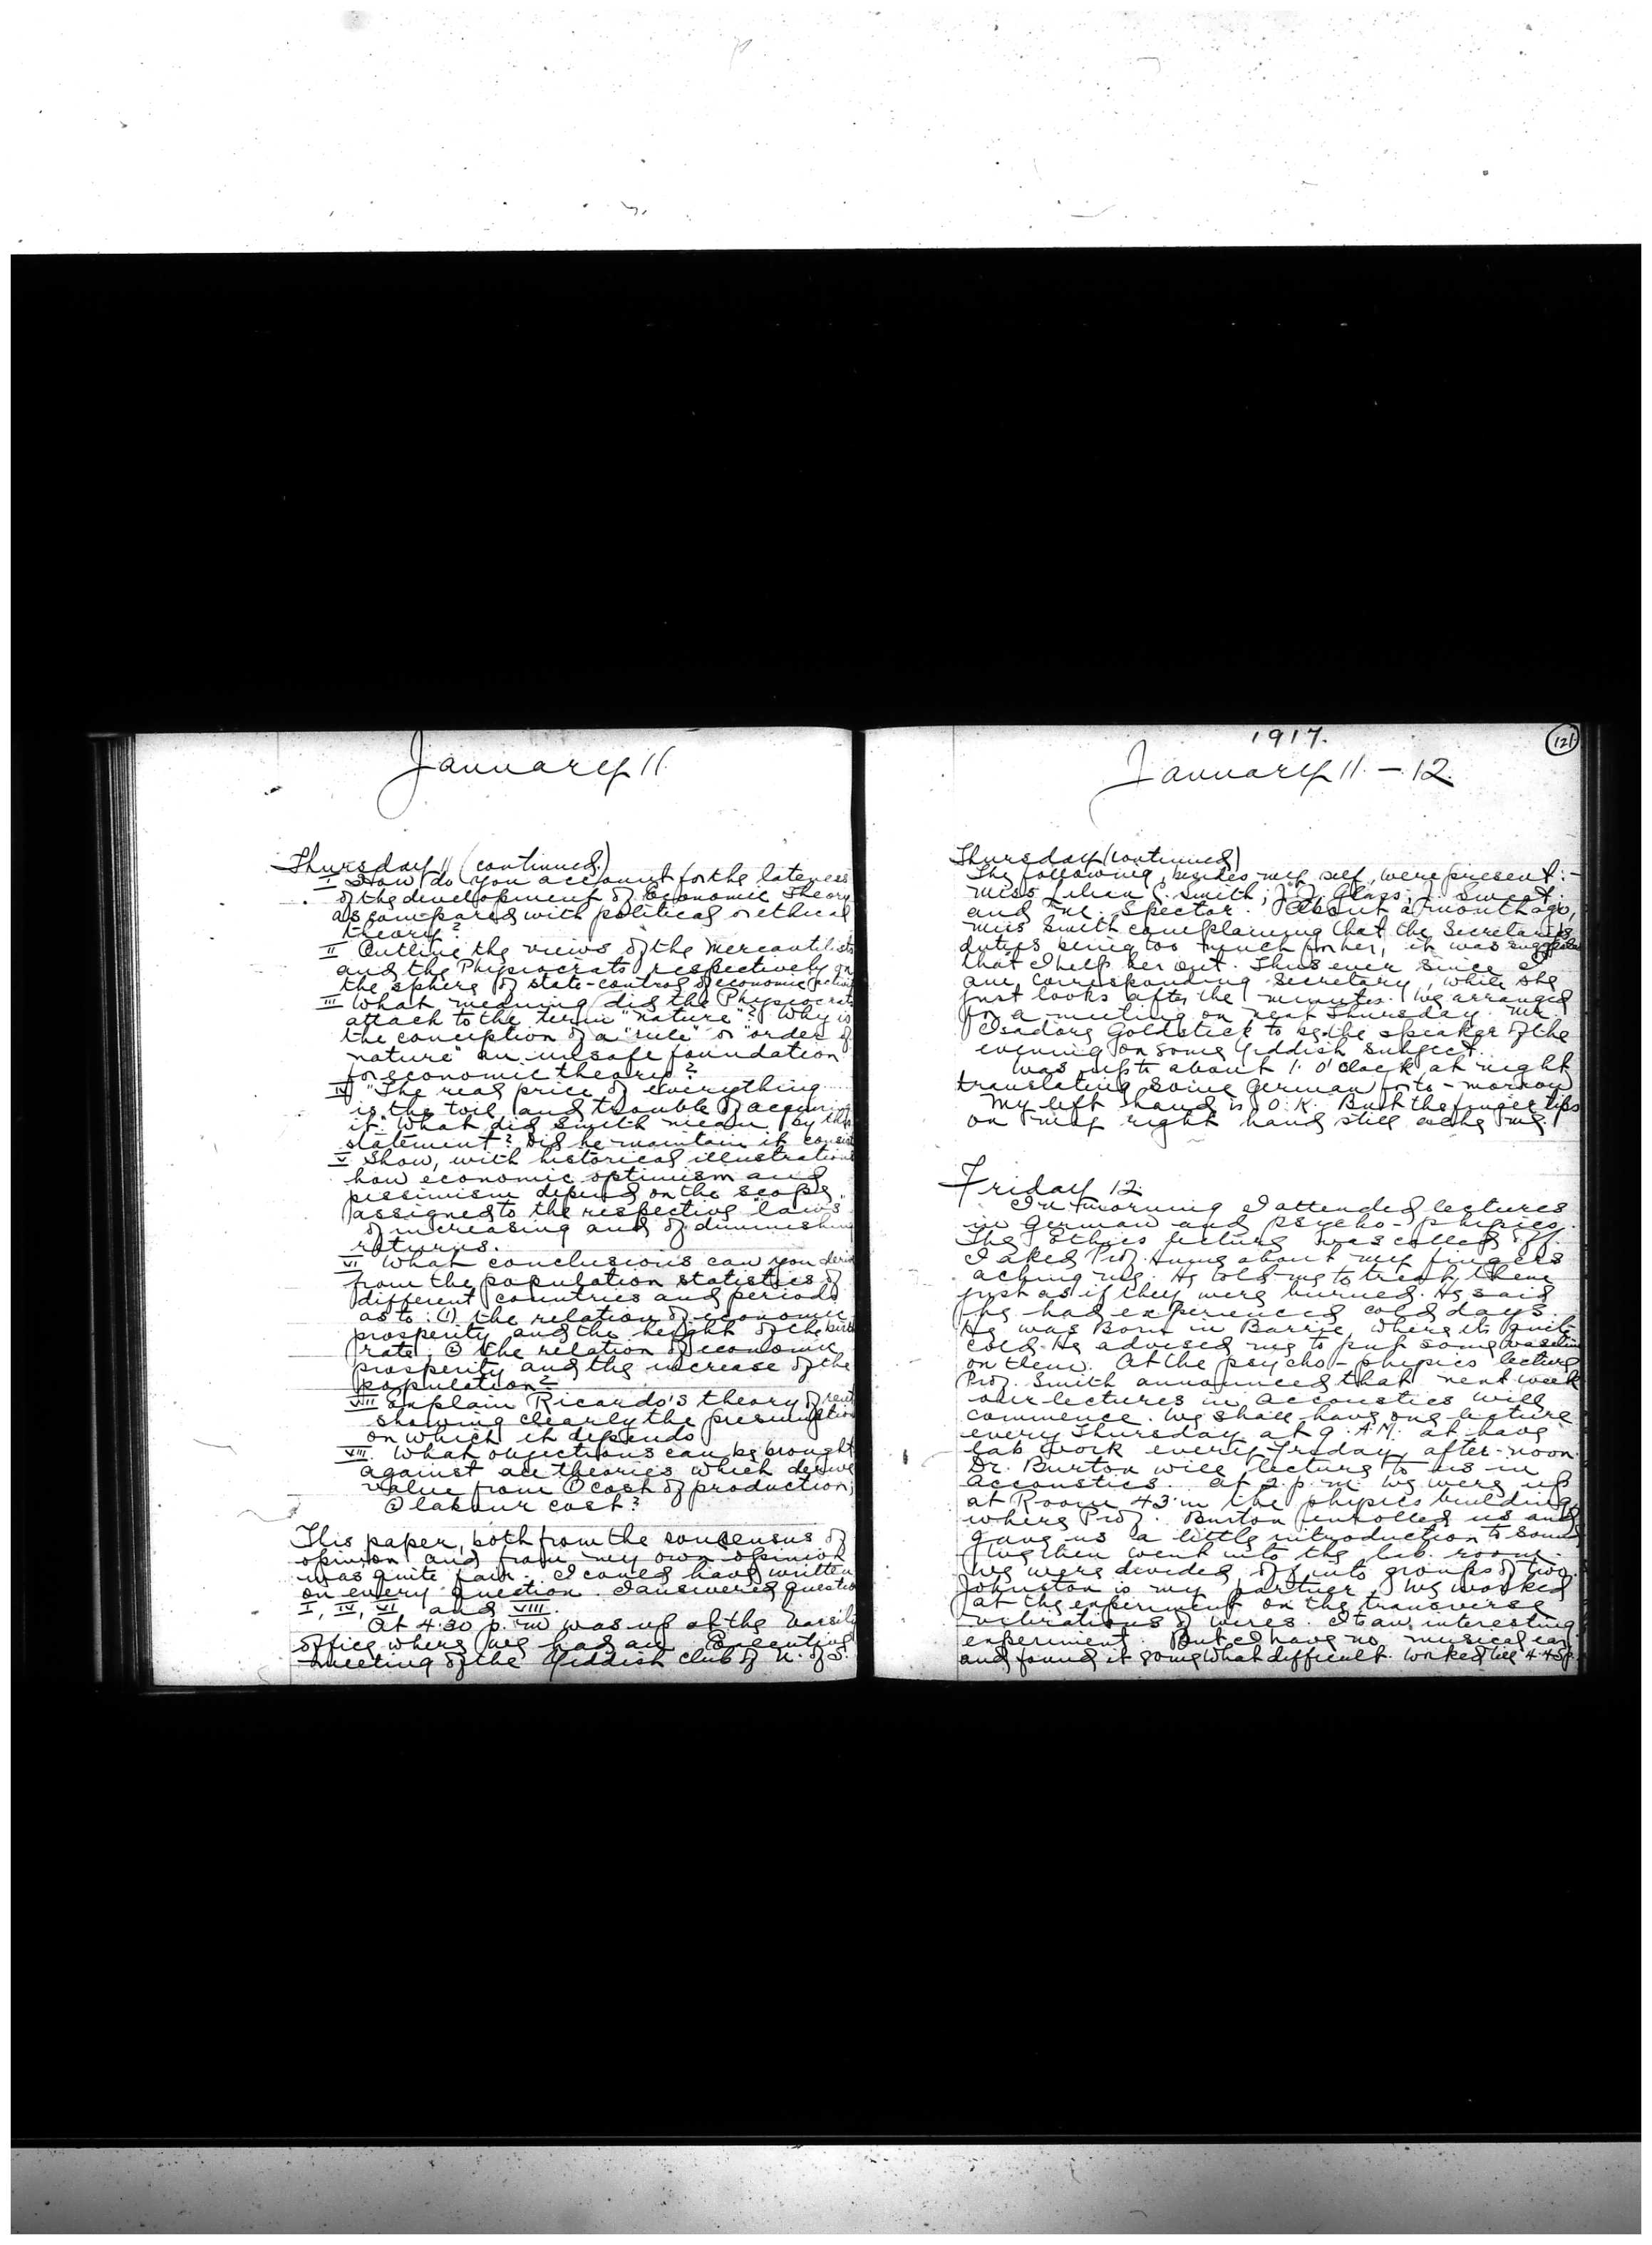 January 11.
Thursday 11 (continued.)
I How do you account for the lateness
of the development of Economic Theory
as compared with political or ethical
theory?
II Outline the views of the Mercantilists
and the Physiocrats respectively on
the sphere of state-control of economic
III What meaning did the Physiocrats
attach to the term "nature"? Why is
the conception of a "rule" or "order of
nature" an unsafe foundation
for economic theory?
IV "The real price of everything
is the toil and trouble of acquiring
it." What did Smith mean by this
statement? Did he maintain it
V Show, with historical illustrations
how economic optimism and
pessimism depend on the scope
assigned to the respective "laws"
of increasing and of diminishing
returns.
VI What conclusions can you
from the population statistics of
different countries and periods
as to: (1) the relation of economic
prosperity and the height of the birth
rate; (2) the relation of economic
prosperity and the increase of the
population?
VII Explain Ricardo's theory of rent
showing clearly the presumption
on which it depends
VIII. What objections can be brought
against all theories which derive
value from (1) cost of production;
(2) labour cost?
This paper, both from the consensus of
opinion and from my own opinion
was quite fair. I could have written
on every question. I answered
I, IV, VI and VIII.
At 4.30 p.m was up at the Varsity
office where we had an Executive
meeting of the Yiddish Club of U. of T.
1917.
121
January 11. - 12.
Thursday (continued)
The following, besides my self, were present:-
Miss Lilian C. Smith; J. J. Glass; J. Sweet;
and Mr. Spector. About a month ago,
Miss Smith complaining that the Secretary's
duties being too much for her, it was suggested
that I help her out. Thus ever since I
am corresponding Secretary, while she
just looks after the minutes. We arranged
for a meeting on next Thursday. Mr.
Isadore Goldstick to be the speaker of the
evening on some Yiddish subject.
Was up to about 1. o'clock at night
translating some German for to-morrow
My left hand is O.K. But the finger tips
on my right hand still ache me.
Friday 12.
In morning I attended lectures
in German and psycho-physics.
The Ethics lecture was called off.
I aked Prof. Hume about my fingers
aching me. He told me to treat them
just as if they were burned. He said
he had experienced cold days.
He was Born in Barrie where its quite
cold. He advised me to put some vaseline
on them. At the psycho-physics lecture
Prof. Smith announced that next week
our lectures in Accoustics will
commence. We shall have one lecture
every Thursday at 9. A.M. at have
lab work every Friday after-noon.
Dr. Burton will lecture to us in
accoustics. At 2. p.m. we were up
at Room 43 in the physics building
where Prof. Burton enrolled us and
gave us a little introduction to sound
We then went into the lab. room.
We were divided off into groups of two.
Johnston is my partner. We worked
at the experiment on the transverse
vibrations of wires. Its an interesting
experiment. But I have no musical ear
and found it somewhat difficult. Worked till 4.45 p.